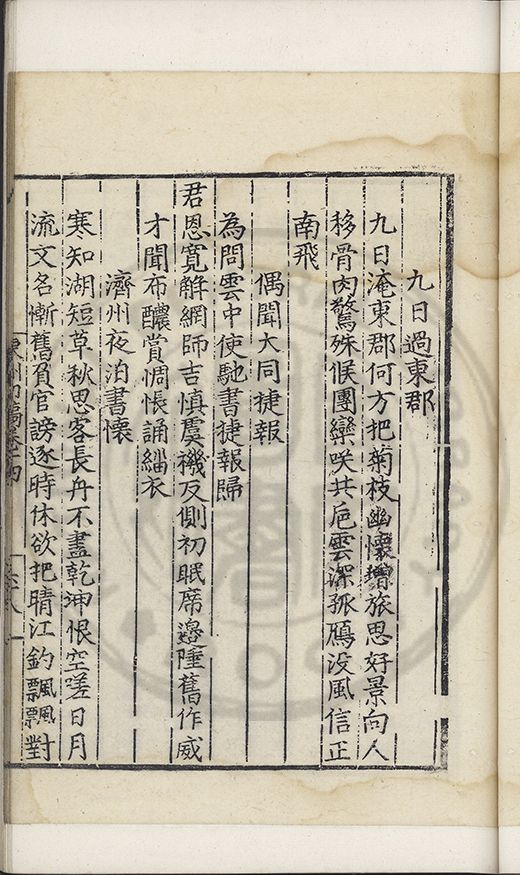 九日過東郡
九日淹東郡何方把菊枝幽懷增旅思好景向人
移骨肉驚殊候團欒咲共巵雲深孤鴈没風信正
南飛
偶聞大同捷報
為問雲中使馳書捷報歸
君恩寬解網師吉慎虞禨反側初眠席邊陲舊作威
才聞布釀賞惆悵誦緇衣
濟州夜泊書懷
寒知湖短草秋思客長舟不盡乾坤恨空嗟日月
流文名慚舊負官謗逐時休欲把晴江釣飄飄對